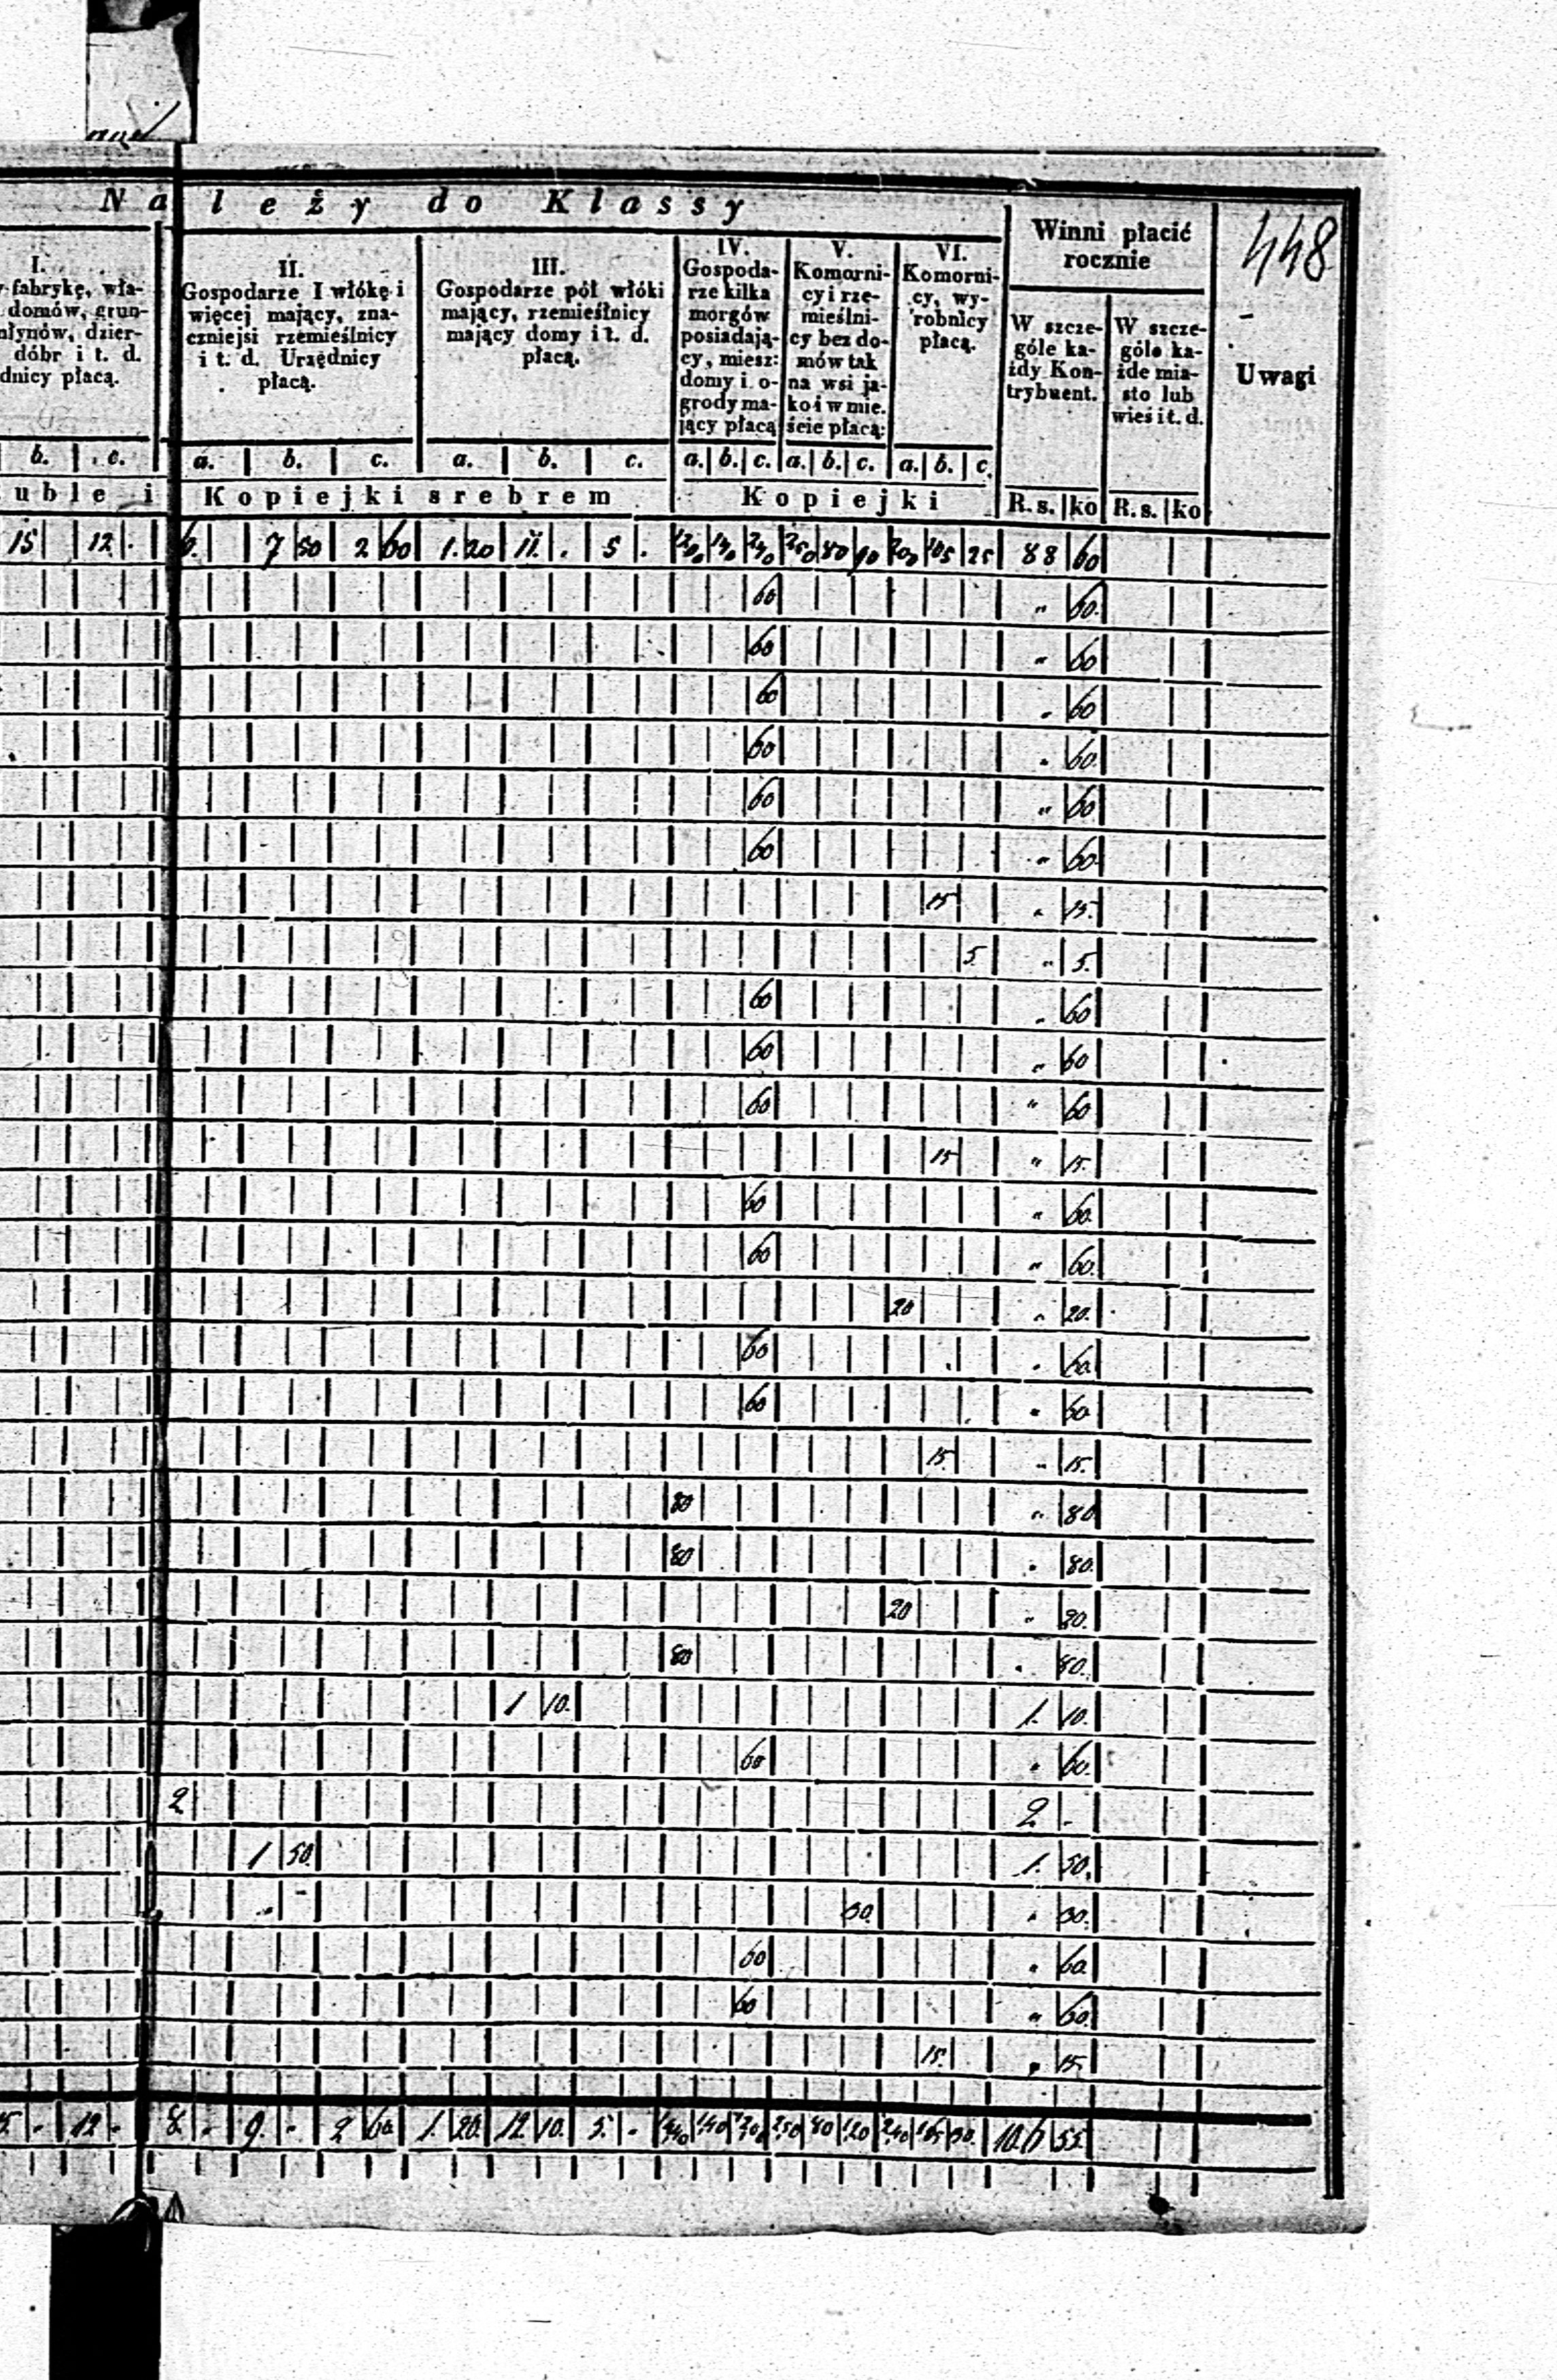 448
N a l e ż y d o K l a s s y
I.
fabrykę, wła-
domów, grun-
młynów, dzier-
dóbr i t. d.
dnicy płacą.
II.
Gospodarze I włókę i
więcej mający, zna-
czniejsi rzemieślnicy
i t. d. Urzędnicy
płacą.
III.
Gospodarze pół włóki
mający, rzemieślnicy
mający domy i t. d.
płacą.
IV.
Gospoda-
rze kilka
morgów
posiadają-
cy, miesz:
domy i o-
grody ma-
jący płacą
V.
Komorni-
cy i rze-
mieślni-
cy bez do-
mów tak
na wsi ja-
ko i w mie.
ście płacą:
VI.
Komorni-
cy, wy-
robnicy
płacą.
Winni płacić
rocznie
W szcze-
góle ka-
żdy Kon-
trybuent.
W szcze-
góle ka-
żde mia-
sto lub
wieś i t. d.
Uwagi
b. c. a. b. c. a. b. c. a. b. c. a. b. c. a. b. c.
uble i K o p i e j k i s r e b r e m K o p i e j k i R. s. ko R. s. ko
15 12 . 6. 7 50 2 60 1. 20 11. . 5 . 250 80 90 200 105 25 88 60
60 " 60.
60 " 60
60 " 60
60 " 60.
60 " 60
60 " 60
15 " 15.
5. " 5.
60 " 60
60 " 60
60 " 60
15 " 15.
60 " 60.
60 " 60.
20 " 20.
60 " 60.
60 " 60
15. " 15.
80 " 80
80 " 80.
20 " 20.
80 " 80.
1 10. 1. 10.
60 " 60.
2 2 -
1 50. 1. 50.
30. " 30.
60 " 60
60 " 60.
15. " 15.
5. - 12 - 8. . 9. - 2 60. 1. 20. 12. 10. 5. - 140 250 80 120 240 165 30. 106 55